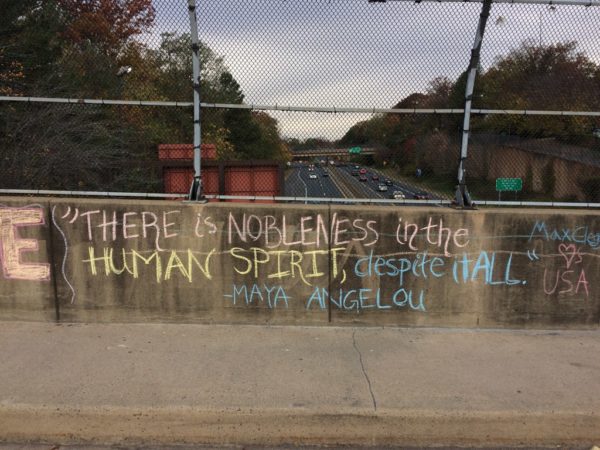 E
"THERE is NOBLENESS in the
HUMAN SPIRIT, despite it ALL."
-MAYA ANGELOU
USA